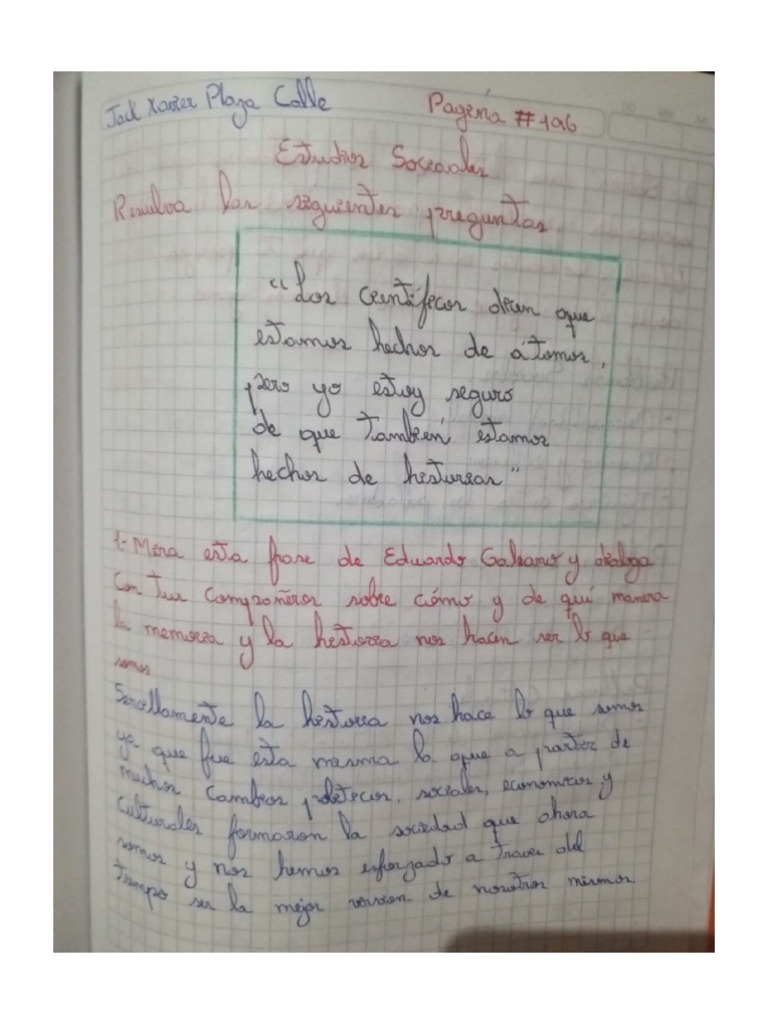 Jack Xavier Plaza Calle
Pagína #196
Estudios Sociales
Resuelva las siguientes preguntas.
"Los científicos dicen que
estamos hechos de átomos,
pero yo estoy seguro
de que también estamos
hechos de historias"
1- Mira esta frase de Eduardo Galeano y dialoga
con tus compañeros sobre cómo y de qué manera
la memoria y la historia nos hacen ser lo que
somos
Sencillamente la historia nos hace lo que somos
ya que fue esta misma la que a partir de
muchos cambios políticos, sociales, economicos y
culturales formaron la sociedad que ahora
somos y nos hemos esforzado a traves del
tiempo ser la mejor version de nosotros mismos.